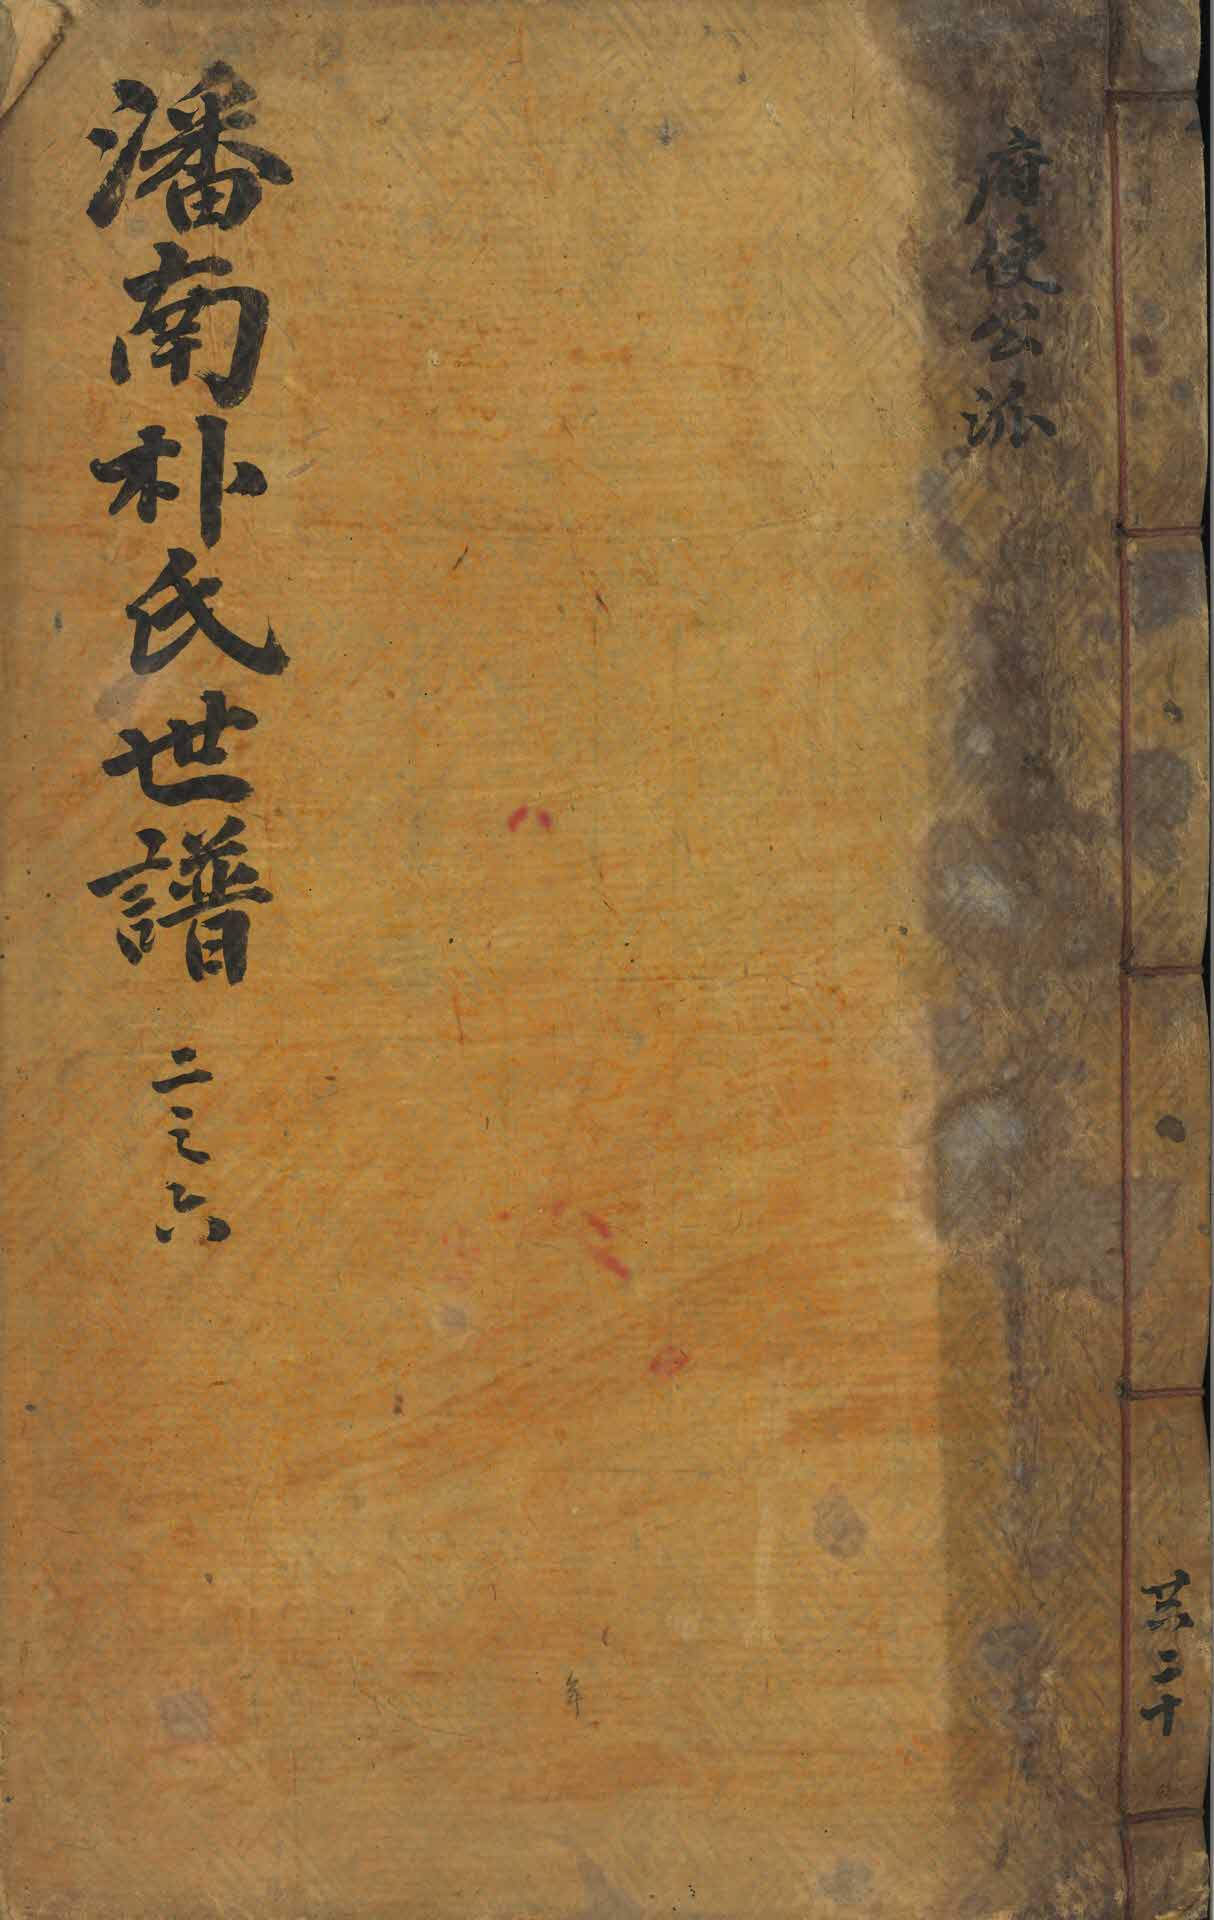 府使公派
潘南朴氏世譜 二之六
共二十